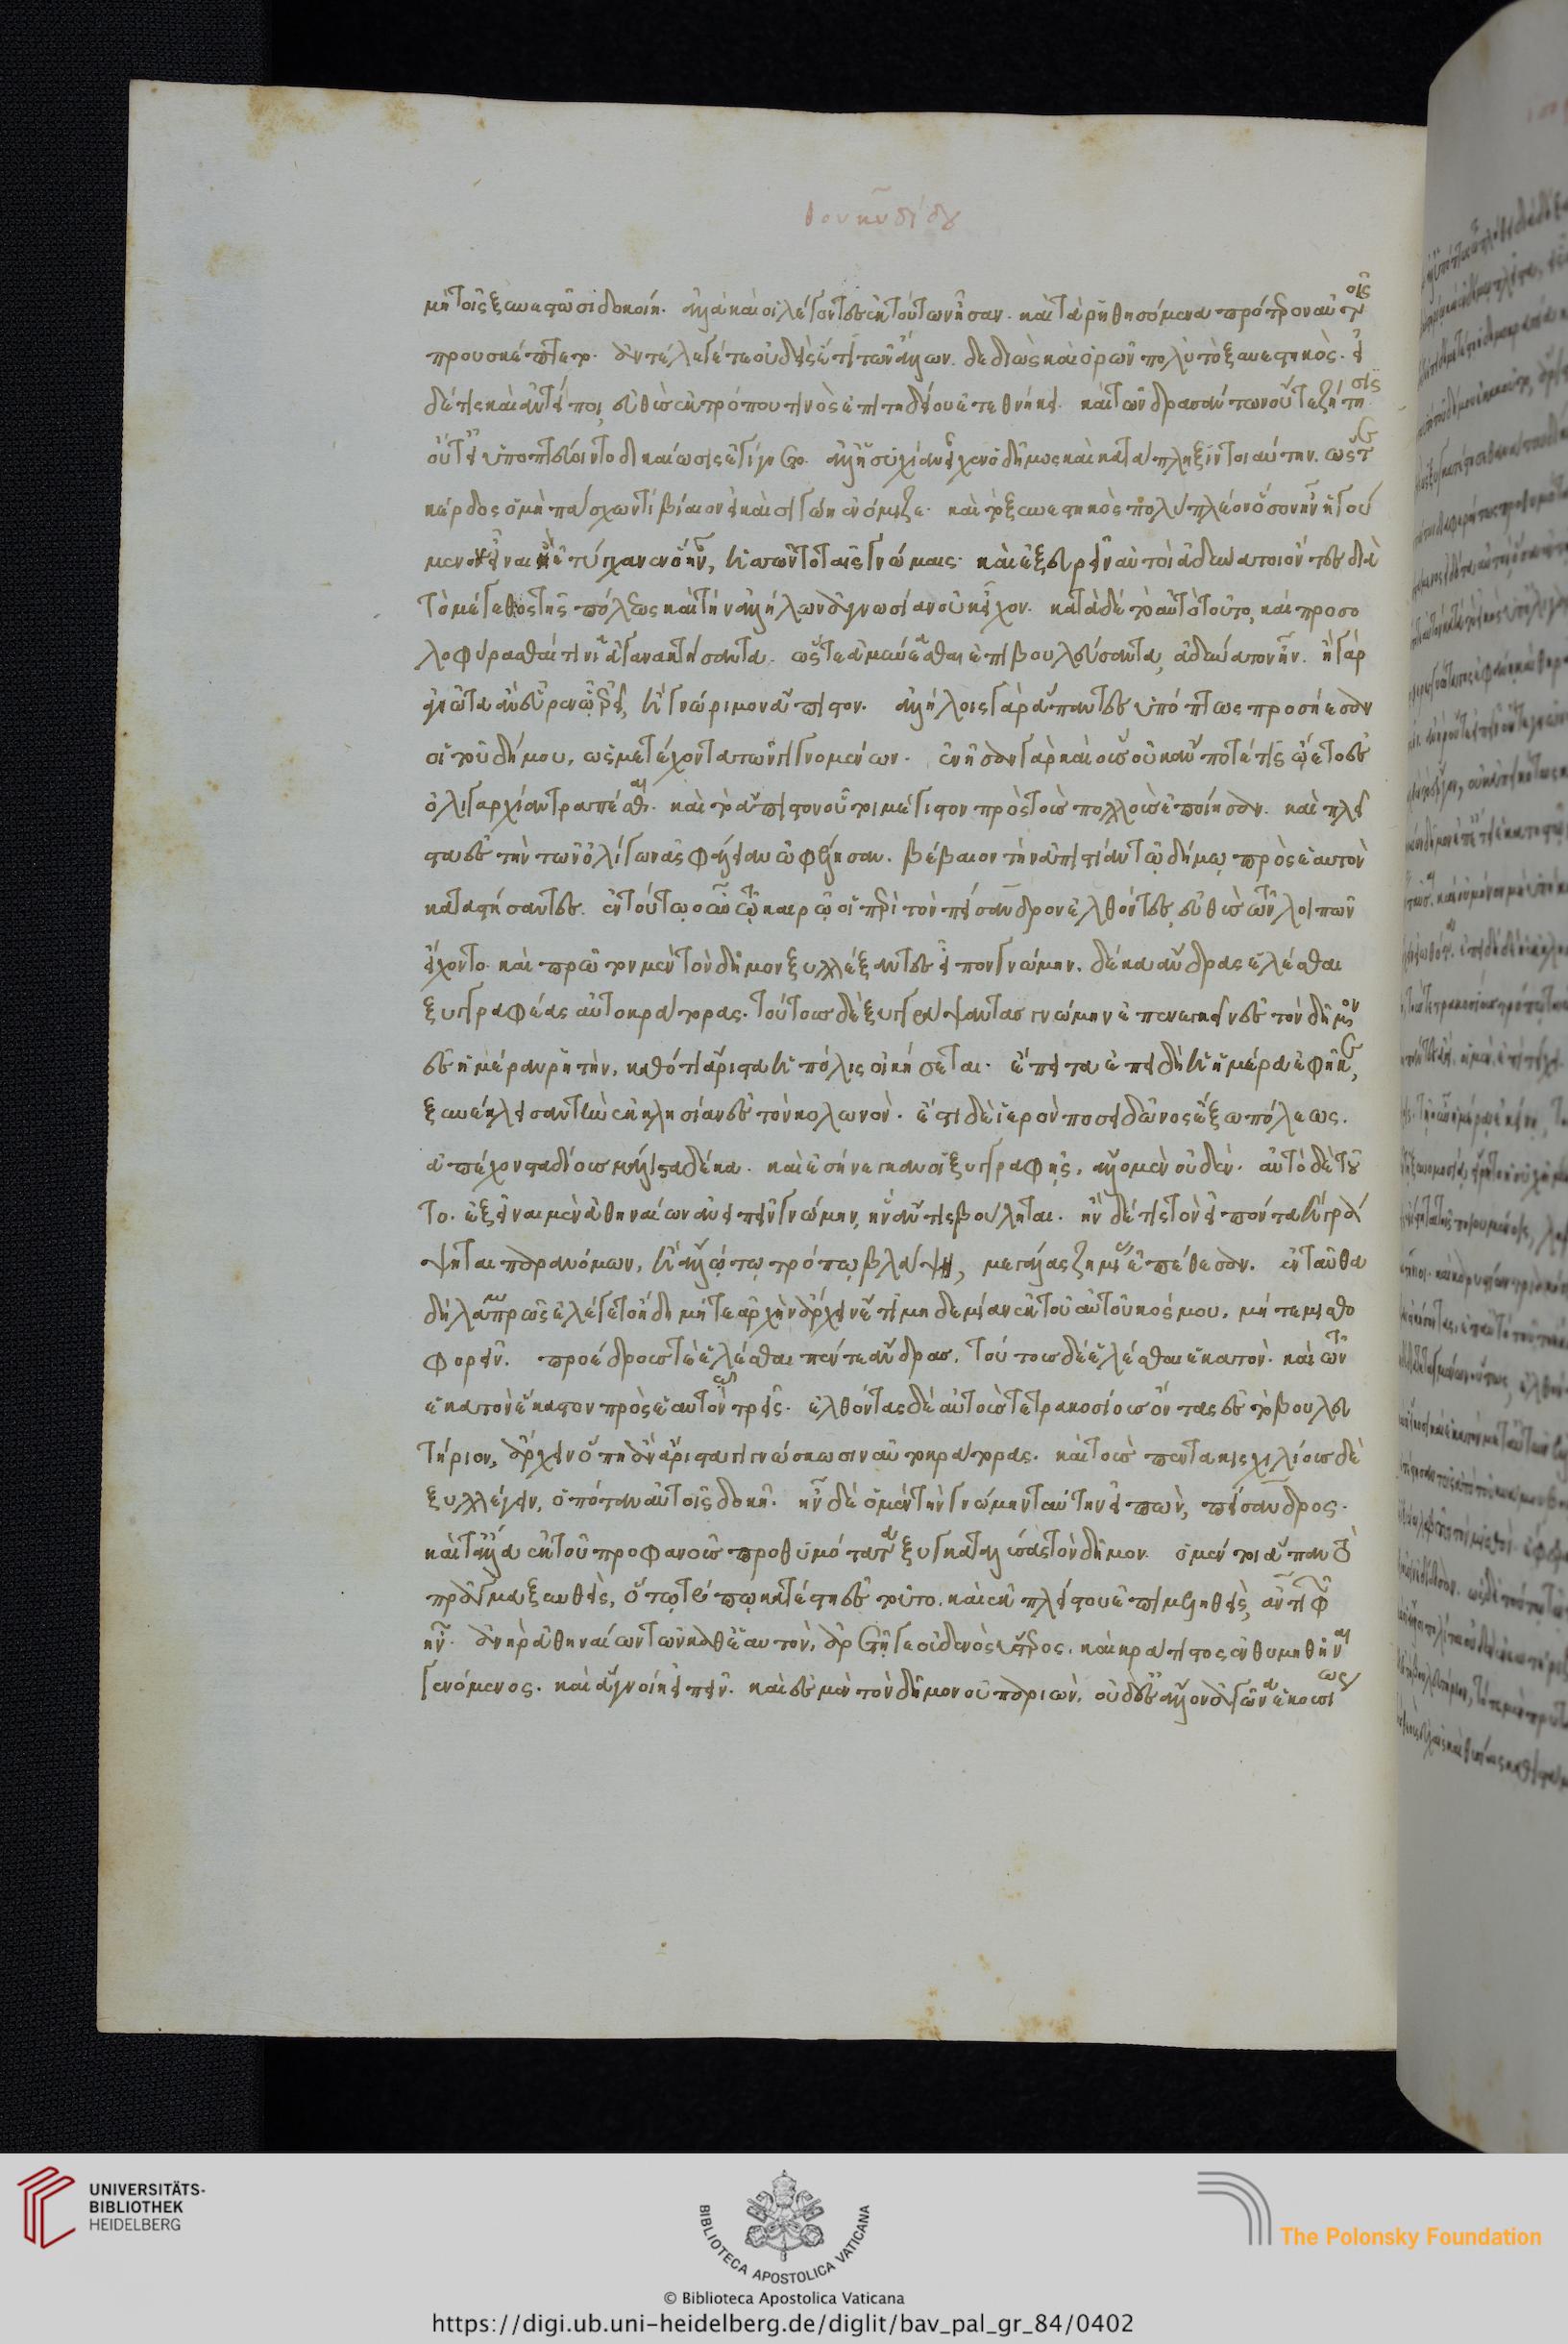 Θουκυδίδου
μὴ τοῖς ξυνεστῶσι δοκοίη. ἀλλὰ καὶ οἱ λέγοντες ἐκ τούτων ἦσαν. καὶ τὰ ῥηθησόμενα πρότερον αὐτοῖς
προυσκέπτετο. ἀντέλεγέ τε οὐδεὶς ἔτι τῶν ἄλλων. δεδιὼς καὶ ὁρῶν πολὺ τὸ ξυνεστηκὸς. εἰ
δέ τις καὶ ἀντείποι, εὐθὺς ἐκ τρόπου τινὸς ἐπιτηδείου ἐτεθνήκει. καὶ τῶν δρασάντων οὔτε ζήτησις
οὔτ' εἰ ὑποπτεύοιντο δικαίωσις ἐγίγνετο. ἀλλ' ἡσυχίαν εἶχεν ὁ δῆμος καὶ κατάπληξιν τοιαύτην. ὥστε
κέρδος ὁ μὴ πάσχων τὶ βίαιον εἰ καὶ σιγώη ἐνόμιζε. καὶ τὸ ξυνεστηκὸς πολὺ πλέον ὅσον ἦν ἡγού
μενοι εἶναι ἢ ἐτύγχανεν ὂν, ἡττῶντο ταῖς γνώμαις. καὶ ἐξευρεῖν αὐτοὶ ἀδύνατοι ὄντες διὰ
τὸ μέγεθος τῆς πόλεως καὶ τὴν ἀλλήλων ἀγνωσίαν οὐκ εἶχον. κατὰ δὲ τὸ αὐτὸ τοῦτο, καὶ προσο
λοφύρασθαί τινι ἀγανακτήσαντα. ὥστε ἀμύνασθαι ἐπιβουλεύσαντα, ἀδύνατον ἦν. ἢ γὰρ
ἀγνῶτα ἂν εὗρεν ᾧ ἐρεῖ, ἢ γνώριμον ἄπιστον. ἀλλήλοις γὰρ ἅπαντες ὑπόπτως προσήεσαν
οἱ τοῦ δήμου, ὡς μετέχοντα τῶν γιγνομένων. ἐνῆσαν γὰρ καὶ οὓς οὐκ ἄν ποτέ τις ᾤετο ἐς
ὀλιγαρχίαν τραπέσθαι. καὶ τὸ ἄπιστον οὗτοι μέγιστον πρὸς τοὺς πολλοὺς ἐποίησαν. καὶ πλεῖ
στα ἐς τὴν τῶν ὀλίγων ἀσφάλειαν ὠφέλησαν. βέβαιον τὴν ἀπιστίαν τῷ δήμῳ πρὸς ἑαυτὸν
καταστήσαντες. ἐν τούτῳ οὖν τῷ καιρῷ οἱ περὶ τὸν πείσανδρον ἐλθόντες εὐθὺς τῶν λοιπῶν
εἴχοντο. καὶ πρῶτον μὲν τὸν δῆμον ξυλλέξαντες εἶπον γνώμην. δέκα ἄνδρας ἑλέσθαι
ξυγγραφέας αὐτοκράτορας. τούτους δὲ ξυγγράψαντας γνώμην ἐπενεγκεῖν ἐς τὸν δῆμον
ἐς ἡμέραν ῥητὴν, καθότι ἄριστα ἡ πόλις οἰκήσεται. ἔπειτα ἐπειδὴ ἡ ἡμέρα ἐφῆκε,
ξυνέκλεισαν τὴν ἐκκλησίαν ἐς τὸν κολωνὸν. ἔστι δὲ ἱερὸν ποσειδῶνος ἔξω πόλεως.
ἀπέχον σταδίους μάλιστα δέκα. καὶ ἐσήνεγκαν οἱ ξυγγραφῆς, ἄλλο μὲν οὐδὲν. αὐτὸ δὲ τοῦ
το. ἐξεῖναι μὲν ἀθηναίων ἀνειπεῖν γνώμην, ἣν ἄν τις βούληται. ἢν δέ τις τὸν εἰπόντα ἢ γρά
ψηται παρανόμων, ἢ ἄλλῳ τῳ τρόπῳ βλάψῃ, μεγάλας ζημίας ἐπέθεσαν. ἐνταῦθα
δὴ λαμπρῶς ἐλέγετο ἤδη μήτε ἀρχὴν ἄρχειν ἔτι μηδεμίαν ἐκ τοῦ αὐτοῦ κόσμου. μήτε μισθο
φορεῖν. προέδρους τὲ ἑλέσθαι πέντε ἄνδρας. τούτους δὲ ἑλέσθαι ἑκατὸν. καὶ τῶν
ἑκατὸν ἕκαστον πρὸς ἑαυτὸν τρεῖς. ἐλθόντας δὲ αὐτοὺς τετρακοσίους ὄντας ἐς τὸ βουλευ
τήριον, ἄρχειν ὅπη ἂν ἄριστα γιγνώσκωσιν αὐτοκράτορας. καὶ τοὺς πεντακισχιλίους δὲ
ξυλλέγειν, ὁπόταν αὐτοῖς δοκῆ. ἦν δὲ ὁ μὲν τὴν γνώμην ταύτην εἰπὼν, πείσανδρος.
καὶ τἄλλα ἐκ τοῦ προφανοῦς προθυμότατα ξυγκαταλύσας τὸν δῆμον. ὁ μέντοι ἅπαν τὸ
πρᾶγμα ξυνθεὶς, ὅτῳ τρόπῳ κατέστη ἐς τοῦτο. καὶ ἐκ πλείστου ἐπιμεληθεὶς, ἀντιφῶν
ἦν. ἀνὴρ ἀθηναίων τῶν καθ' ἑαυτὸν, ἀρετῇ τε οὐδενὸς ὕστερος. καὶ κράτιστος ἐνθυμηθῆναι
γενόμενος. καὶ ἃ γνοίη εἰπεῖν. καὶ ἐς μὲν τὸν δῆμον οὐ παριὼν, οὐδ' ἐς ἄλλον ἀγῶνα ἑκουσίως
UNIVERSITÄTS-
BIBLIOTHEK
HEIDELBERG
BIBLIOTECA APOSTOLICA VATICANA
The Polonsky Foundation
© Biblioteca Apostolica Vaticana
https://digi.ub.uni-heidelberg.de/diglit/bav_pal_gr_84/0402